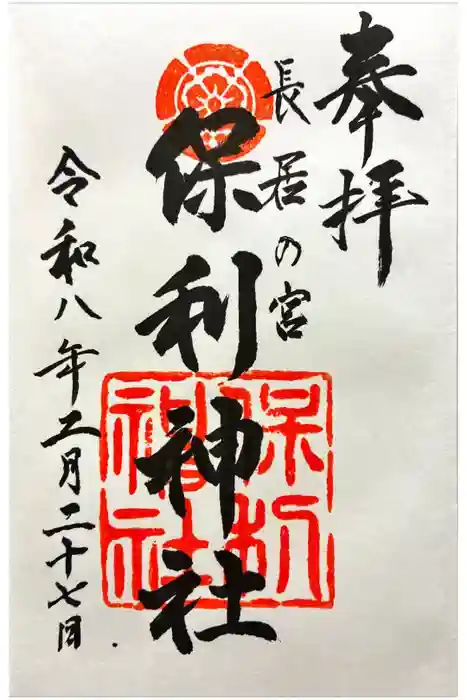 奉拝
長居の宮
保利神社
令和八年二月二十七日
保利
神社